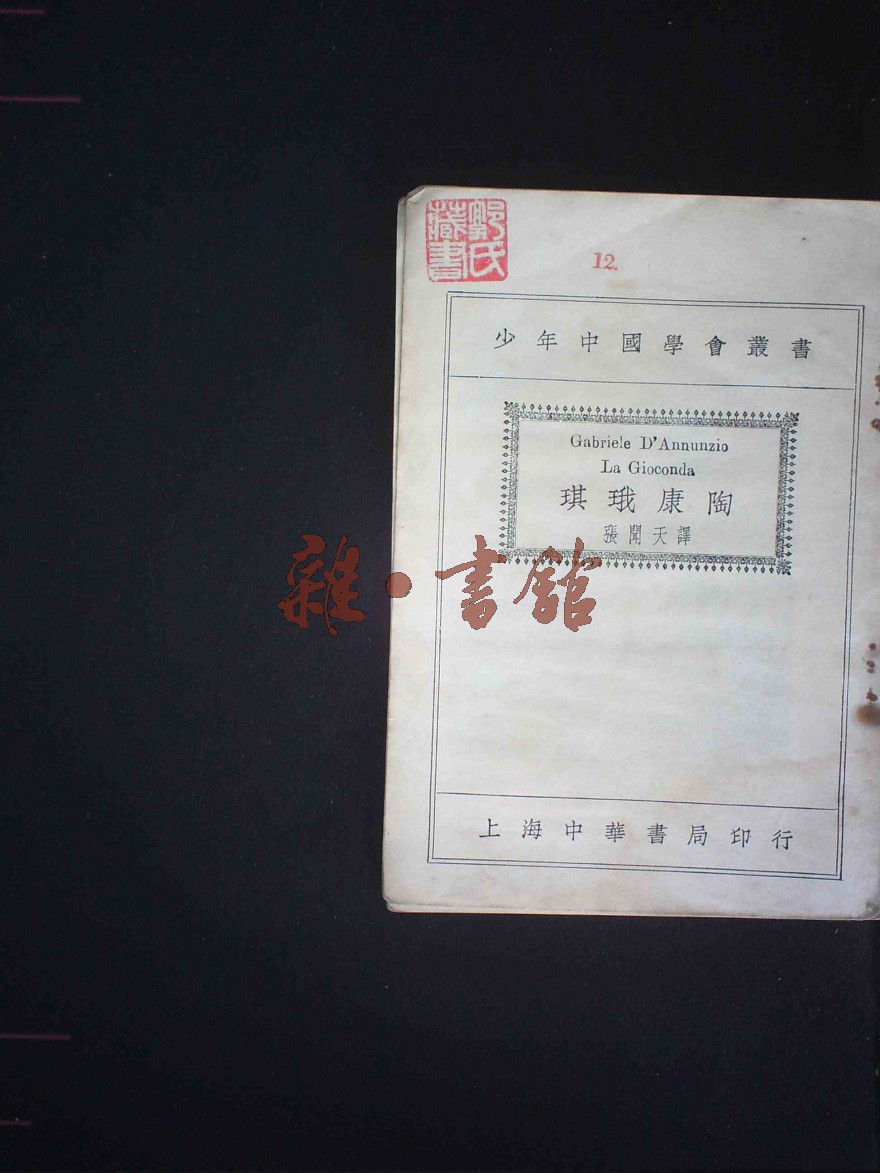 鄭氏
藏書
12.
少年中國學會叢書
Gabriele D'Annunzio
La Gioconda
琪珴康陶
張聞天譯
雜·書館
上海中華書局印行